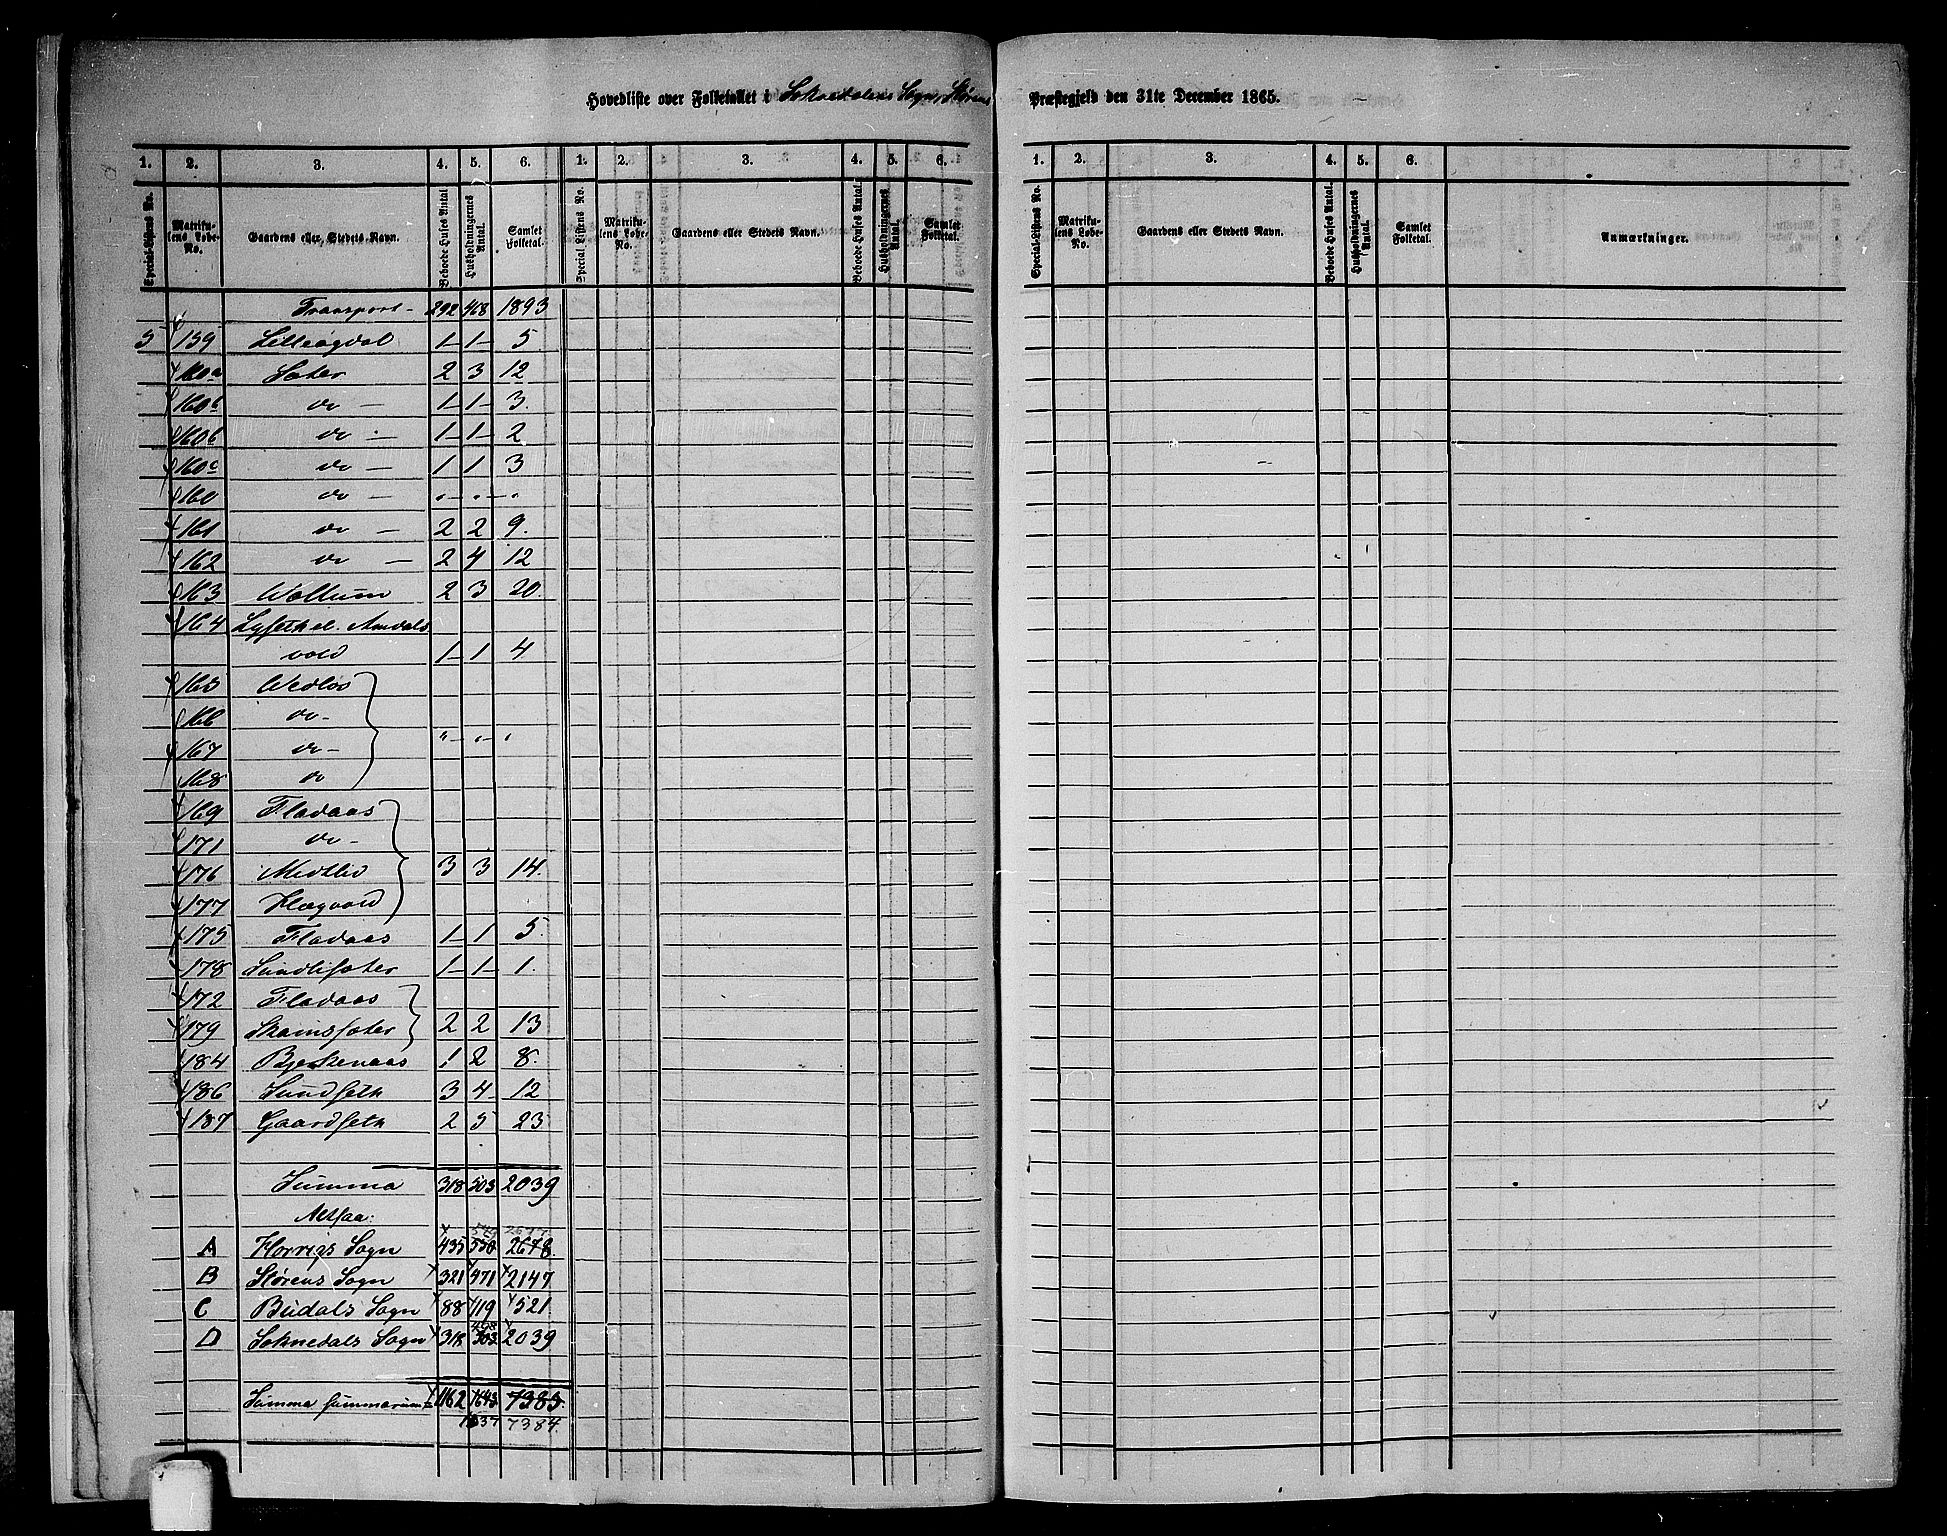 Hovedliste over Folketallet i Soknedalens Sogn, Størens Præstegjeld den 31te December 1865.
1. 2. 3. 4. 5. 6. 1. 2. 3. 4. 5. 6. 1. 2. 3. 4. 5. 6.
Special-Listens No. Matrikulens Løbe-No. Gaardens eller Stedets Navn. Beboede Huses Antal Husholdningernes Antal. Samlet Folketal. Special Listens No. Matrikulens Løbe-No. Gaardens eller Stedets Navn. Beboede Huses Antal. Husholdningernes Antal. Samlet Folketal. Special-Listens No. Matrikulens Løbe-No. Gaardens eller Stedets Navn. Beboede Huses Antal. Husholdningernes Antal. Samlet Folketal. Anmærkninger.
Transport - 292 468 1893
5 159 Lilleøgdal 1 - 1 - 5
160a Sæter 2 3 12
160b do - 1 - 1 - 3.
160b do - 1 - 1 - 2
160c do - 1 1 3
160 do - " - " - "
161 do - 2 2 9.
162 do - 2 4 12
163 Vollum 2 3 20.
164 Lyseth el. Amdals
vold 1 - 1 4
165 Vedløs
166 do -
167 do - " - " - "
168 do
169 Fladaas
171 do -
176 Midtlid 3 3 14.
177 Hægvold
175 Fladaas 1 - 1 5.
178 Lundlisæter 1 - 1 - 1.
172 Fladaas
179 Skamsæter 2 2 13
184 Bjerkenaas 1 2 8.
186 Sundseth 3 4 - 12
187 Gaardseth 2 5 23
Summa 318 503 2039
Altsaa:
A Horrigs Sogn 435 550 2678.
B Størens Sogn 321 471 2147.
C Budals Sogn 88 119 521.
498
D Soknedals Sogn 318 503 2039
Summa summarum 1162 1643 7385
1637 7384.